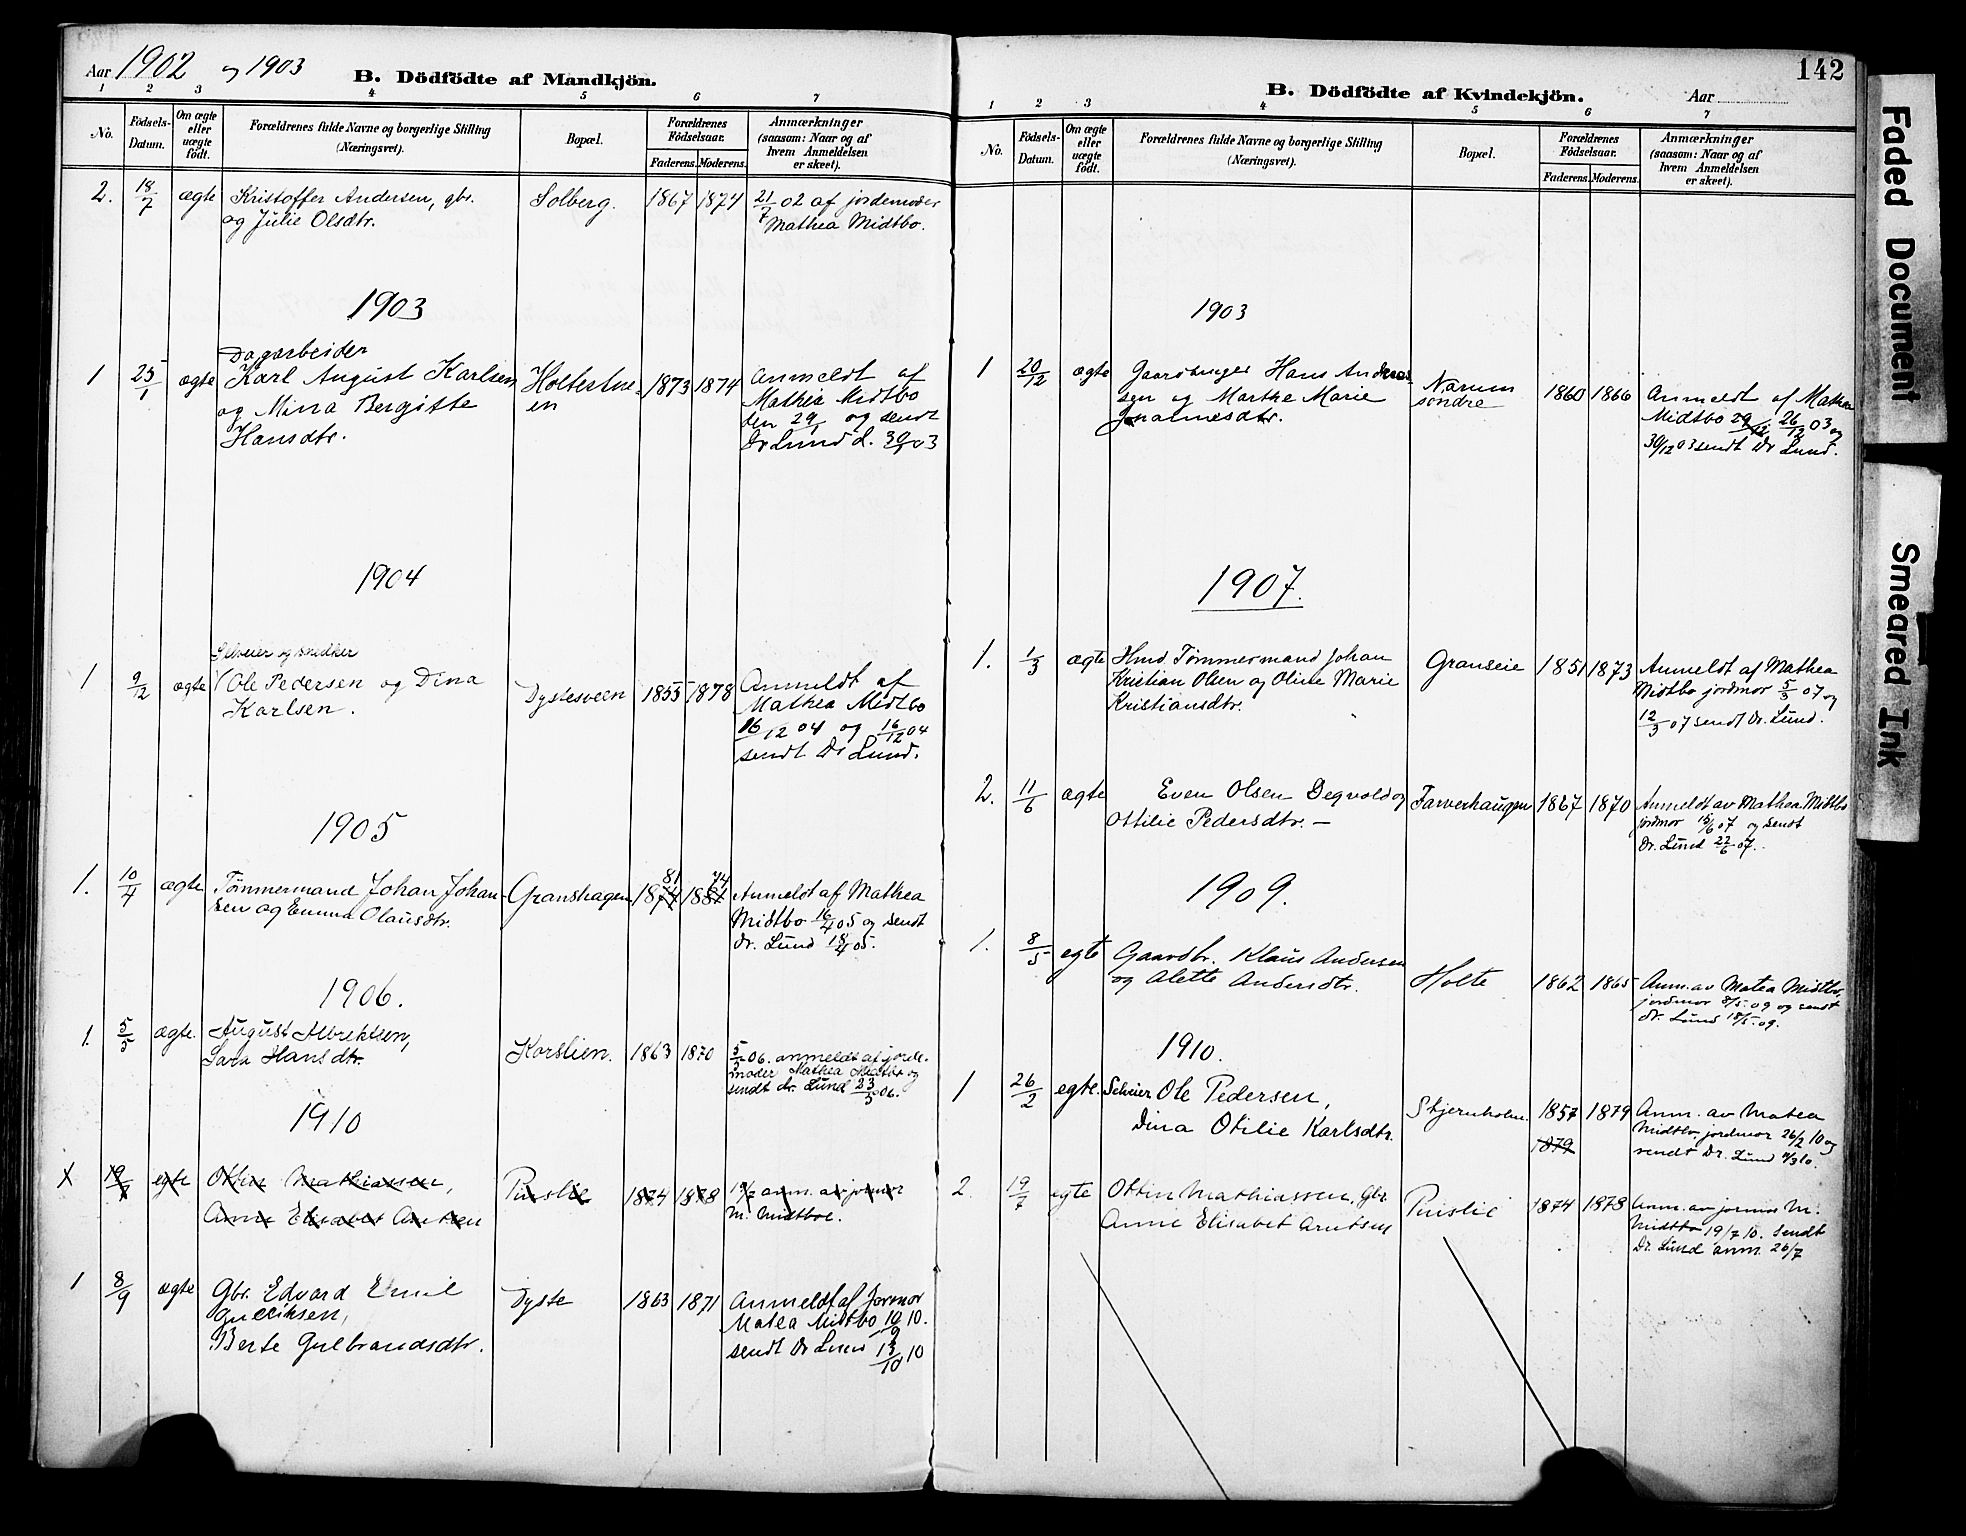 Aar 1902 og 1903
B. Dödfödte af Mandkjön.
1 2 3 4 5 6 7
No.
Födsels-
Datum.
Om ægte
eller
uægte
födt.
Forældrenes fulde Navne og borgerlige Stilling
(Næringsvei).
Bopæl.
Forældrenes
Födselsaar.
Faderens. Moderens.
Anmærkninger
(saasom: Naar og af
hvem Anmeldelsen
er skeet).
2. 18/7 ægte Kristoffer Andersen, gbr. Solberg. 1867 1874 21/7 02 af jordemoder
og Julie Olsdtr. Mathea Midtbo.
1903
Dagarbeider
1 25/1 ægte Karl August Karlsen Holtestue- 1873 1874 Anmeldt af
og Mina Bergitte en Mathea Midtbo
Hansdtr. den 29/1 og sendt
Dr Lund d. 30/1 03
1904
Selveier og snedker
1 9/2 ægte Ole Pedersen og Dina Dystesveen 1855 1878 Anmeldt af
Karlsen. Mathea Midtbo
16/12 04 og 16/12 04
sendt Dr Lund.
1905
81 74
1. 10/4 ægte Tømmermand Johan Johan- Granshagen 1874 1881 Anmeldt af Mathea
sen og Emma Olausdtr. Midtbo 16/4 05 og sendt
Dr. Lund 18/4 05.
1906.
1. 5/5 ægte August Albrektsen, Korslien. 1863 1870 5/5 06. anmeldt af jorde-
Sara Hansdtr. moder Mathea Midtbo og
sendt dr. Lund 23/5 06.
1910
X 19/7 egte Ottin Mathiassen, Pinslie 1874 1878 19/7 anm. av jormor
Anne Elisabet Arntsen M. Midtboe.
1 8/9 ægte Gbr. Edvard Emil Dyste 1863 1871 Anmeldt af Jormor
Gulliksen, Matea Midtbo 10/9 10.
Berte Gulbrandsdtr. sendt Dr Lund 13/10 10
142
B. Dödfödte af Kvindekjön. Aar
1 2 3 4 5 6 7
No.
Födsels-
Datum.
Om ægte
eller
uægte
födt.
Forældrenes fulde Navne og borgerlige Stilling
(Næringsvei).
Bopæl.
Forældrenes
Födselsaar.
Faderens. Moderens.
Anmærkninger
(saasom: Naar og af
hvem Anmeldelsen
er skeet).
1903
1 20/12 ægte Gaardbruger Hans Andreas- Narum 1860 1866 Anmeldt af Mathea
sen og Marthe Marie søndre Midtbo 29/12 26/12 03 og
Johannesdtr. 30/12 03 sendt Dr Lund.
1907.
1. 1/3 ægte Hmd. Tømmermand Johan Granseie 1851 1873 Anmeldt af Mathea
Kristian Olsen og Oline Marie Midtbo jordmor 5/3 07 og
Kristiansdtr. 12/3 07 sendt Dr. Lund.
2. 11/6 ægte Even Olsen Degvold og Farverhaugen 1867 1870 Anmeldt av Mathea Midtbo
Ottilie Pedersdtr. — jordmor 15/6 07 og sendt
Dr. Lund 22/6 07.
1909.
1. 8/5 egte Gaardbr. Klaus Andersen Holte 1862 1865 Anm. av Matea Midtbo,
og Alette Andersdtr. jordmor 8/5-09 og sendt
dr. Lund 18/5-09.
1910.
1 26/2 egte. Selveier Ole Pedersen, Stjernholm 1857 1879 Anm. av Matea
Dina Otilie Karlsdtr. 1879 Midtbo, jordmor 26/2 10 og
sendt Dr. Lund 4/3 10.
2. 19/7 egte Ottin Mathiassen, Gbr Pinslie 1874 1878 Anm. av jormor M.
Anne Elisabet Arntsen Midtbo 19/7 10. sendt
Dr. Lund anm. 26/7
Faded Document
Smeared Ink